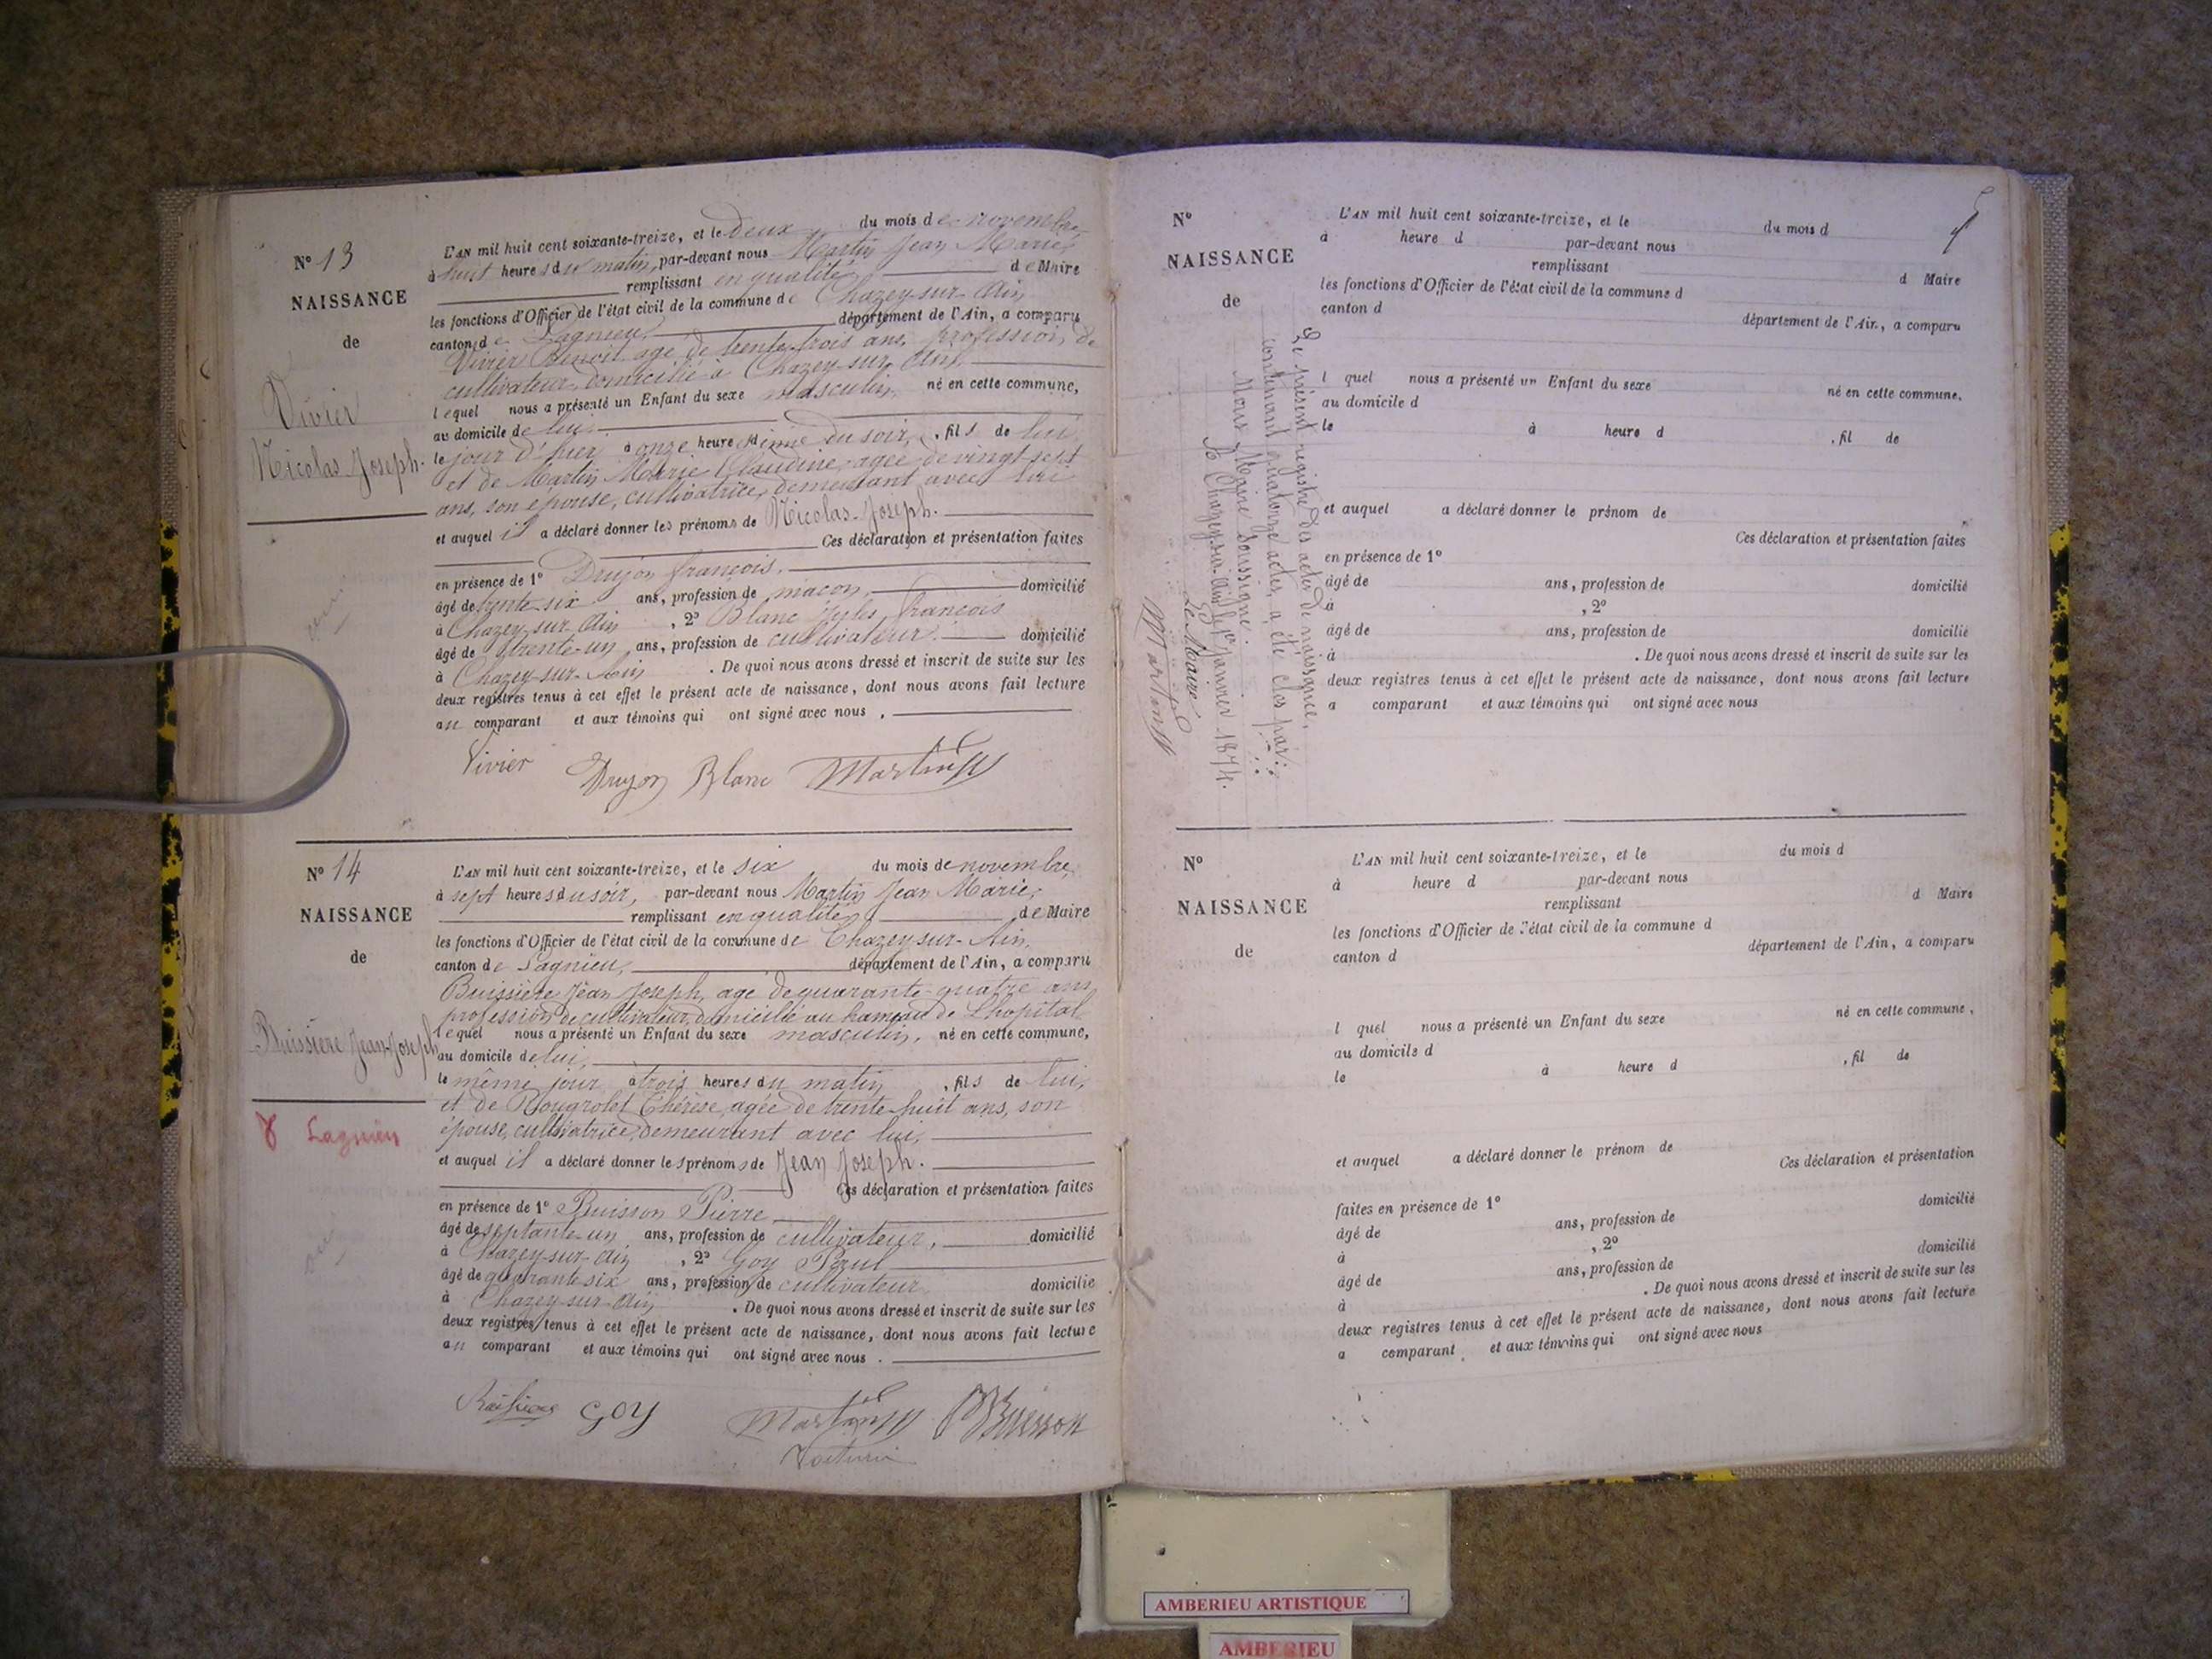 N° 13
NAISSANCE
de
Vivier
Nicolas Joseph.
L'AN mil huit cent soixante-treize, et le deux du mois de novembre
à huit heures du matin, par-devant nous Martin Jean Marie,
remplissant en qualité de Maire
les fonctions d'Officier de l'état civil de la commune de Chazey-sur-Ain
canton de Lagnieu, département de l'Ain, a comparu
Vivier Benoit age de trente-trois ans, profession de
cultivateur, domicilié à Chazey-sur-Ain,
lequel nous a présenté un Enfant du sexe masculin, né en cette commune,
au domicile de lui,
le jour d'hier, à onze heures demie du soir, , fils de lui
et de Martin Marie Claudine, agée de vingt-sept
ans, son épouse, cultivatrice, demeurant avec lui
et auquel il a déclaré donner les prénoms de Nicolas-Joseph.
Ces déclaration et présentation faites
en présence de 1° Drujon françois,
âgé de trente-six ans, profession de maçon, domicilié
à Chazey-sur-Ain , 2° Blanc Jules françois
âgé de trente-un ans, profession de cultivateur, domicilié
à Chazey-sur-Ain . De quoi nous avons dressé et inscrit de suite sur les
deux registres tenus à cet effet le présent acte de naissance, dont nous avons fait lecture
au comparant et aux témoins qui ont signé avec nous .
Vivier Drujon Blanc Martin
N° 14
NAISSANCE
de
Buissière Jean-Joseph
Lagnieu
L'AN mil huit cent soixante-treize, et le six du mois de novembre
à sept heures du soir, par-devant nous Martin Jean Marie,
remplissant en qualité de Maire
les fonctions d'Officier de l'état civil de la commune de Chazey-sur-Ain,
canton de Lagnieu, département de l'Ain, a comparu
Buissière Jean Joseph, age de quarante-quatre ans,
profession de cultivateur, domicilié au hameau de Lhopital
lequel nous a présenté un Enfant du sexe masculin, né en cette commune,
au domicile de lui,
le même jour à trois heures du matin , fils de lui,
et de Rougrolet Thérèse, agée de trente-huit ans, son
épouse, cultivatrice, demeurant avec lui,
et auquel il a déclaré donner les prénoms de Jean Joseph.
Ces déclaration et présentation faites
en présence de 1° Buisson Pierre
âgé de septante-un ans, profession de cultivateur, domicilié
à Chazey-sur-Ain , 2° Goy Paul
âgé de quarante six ans, profession de cultivateur domicilié
à Chazey-sur-Ain . De quoi nous avons dressé et inscrit de suite sur les
deux registres tenus à cet effet le présent acte de naissance, dont nous avons fait lecture
au comparant et aux témoins qui ont signé avec nous .
GOY Martin Buisson
N°
NAISSANCE
de
L'AN mil huit cent soixante-treize, et le du mois d
à heure d par-devant nous
remplissant d Maire
les fonctions d'Officier de l'état civil de la commune d
canton d département de l'Ain, a comparu
l quel nous a présenté un Enfant du sexe né en cette commune,
au domicile d
le à heure d , fil de
et auquel a déclaré donner le prénom de
Ces déclaration et présentation faites
en présence de 1°
âgé de ans, profession de domicilié
à , 2°
âgé de ans, profession de domicilié
à . De quoi nous avons dressé et inscrit de suite sur les
deux registres tenus à cet effet le présent acte de naissance, dont nous avons fait lecture
a comparant et aux témoins qui ont signé avec nous
Le présent registre des actes de naissance,
contenant quatorze actes, a été clos par
Nous Maire soussigné.
A Chazey-sur-Ain, le 1er janvier 1874.
Le Maire
Martin
N°
NAISSANCE
de
L'AN mil huit cent soixante-treize, et le du mois d
à heure d par-devant nous
remplissant d Maire
les fonctions d'Officier de l'état civil de la commune d
canton d département de l'Ain, a comparu
l quel nous a présenté un Enfant du sexe né en cette commune,
au domicile d
le à heure d , fil de
et auquel a déclaré donner le prénom de
Ces déclaration et présentation
faites en présence de 1°
âgé de ans, profession de domicilié
à , 2°
âgé de ans, profession de domicilié
à . De quoi nous avons dressé et inscrit de suite sur les
deux registres tenus à cet effet le présent acte de naissance, dont nous avons fait lecture
a comparant et aux témoins qui ont signé avec nous
AMBERIEU ARTISTIQUE
AMBERIEU